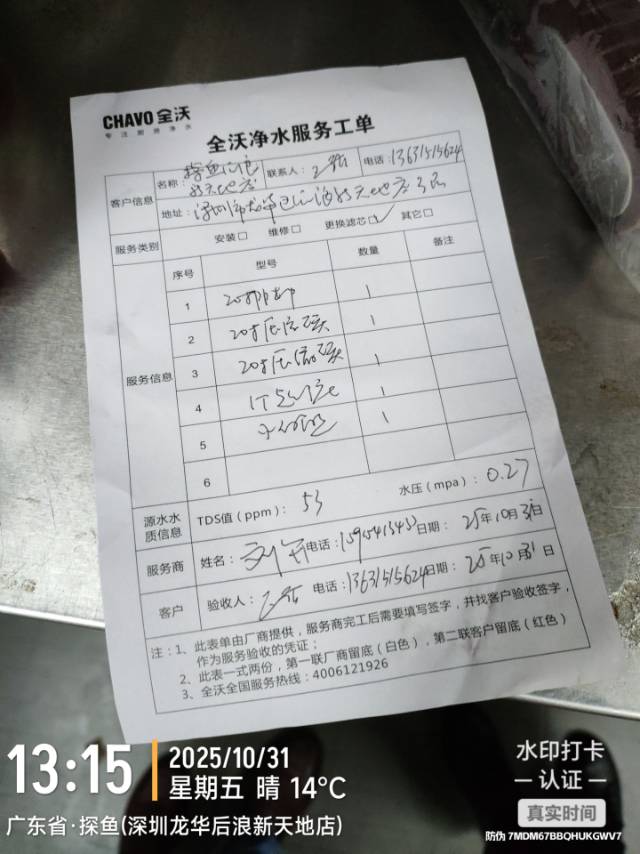 CHAVO 全沃
专注厨房净水
全沃净水服务工单
客户信息
名称：探鱼后浪新天地店 联系人： 电话：13631515624
地址：深圳市龙华区后浪新天地店
服务类别 安装□ 维修□ 更换滤芯□✓ 其它□
服务信息
序号 型号 数量 备注
1 20寸PP棉 1
2 20寸压活碳 1
3 20寸压活碳 1
4 1
5 1
6
源水水质信息 TDS值（ppm）： 53 水压（mpa）： 0.27
服务商 姓名： 电话： 日期： 25年10月31日
客户 验收人： 电话：13631515624 日期： 25年10月31日
注：1、此表单由厂商提供，服务商完工后需要填写签字，并找客户验收签字，
作为服务验收的凭证；
2、此表一式两份，第一联厂商留底（白色），第二联客户留底（红色）
3、全沃全国服务热线：4006121926
13:15
2025/10/31
星期五 晴 14°C
广东省·探鱼(深圳龙华后浪新天地店)
水印打卡
认证
真实时间
防伪 7MDM67BBQHUKGWV7